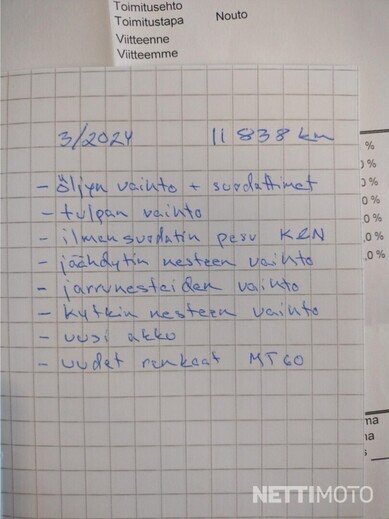 Toimitusehto
Toimitustapa Nouto
Viitteenne
Viitteemme
3/2024 11 838 km
- öljyn vaihto + suodattimet
- tulpan vaihto
- ilmansuodatin pesu K&N
- jäähdytin nesteen vaihto
- jarrunesteiden vaihto
- kytkin nesteen vaihto
- uusi akku
- uudet renkaat MT60
%
0 %
0 %
,0 %
,0 %
,0 %
ma
na
NETTIMOTO